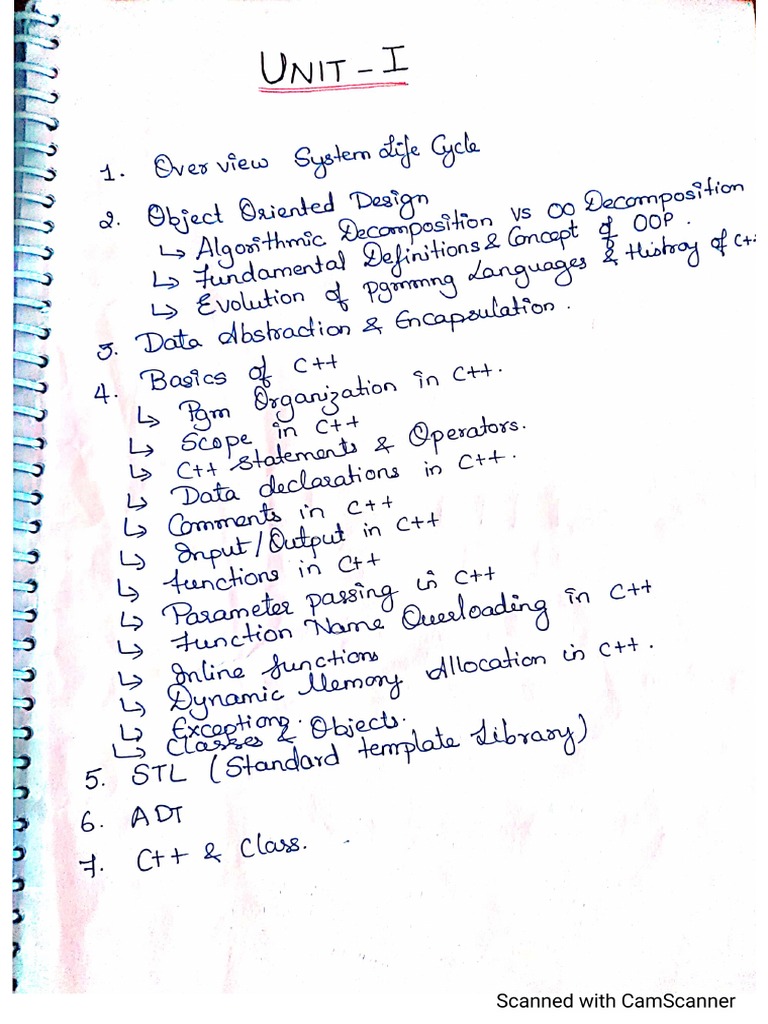 UNIT - I
1. Over view System Life Cycle
2. Object Oriented Design
↳ Algorithmic Decomposition vs OO Decomposition
↳ Fundamental Definitions & Concept of OOP.
↳ Evolution of Pgmmng Languages & History of C+
3. Data Abstraction & Encapsulation.
4. Basics of C++
↳ Pgm Organization in C++.
↳ Scope in C++
↳ C++ Statements & Operators.
↳ Data declarations in C++.
↳ Comments in C++
↳ Input/Output in C++
↳ functions in C++
↳ Parameter passing in C++
↳ Function Name Overloading in C++
↳ Inline functions
↳ Dynamic Memory Allocation in C++.
↳ Exceptions.
↳ Classes & Objects.
5. STL (Standard template Library)
6. ADT
7. C++ & Class.
Scanned with CamScanner